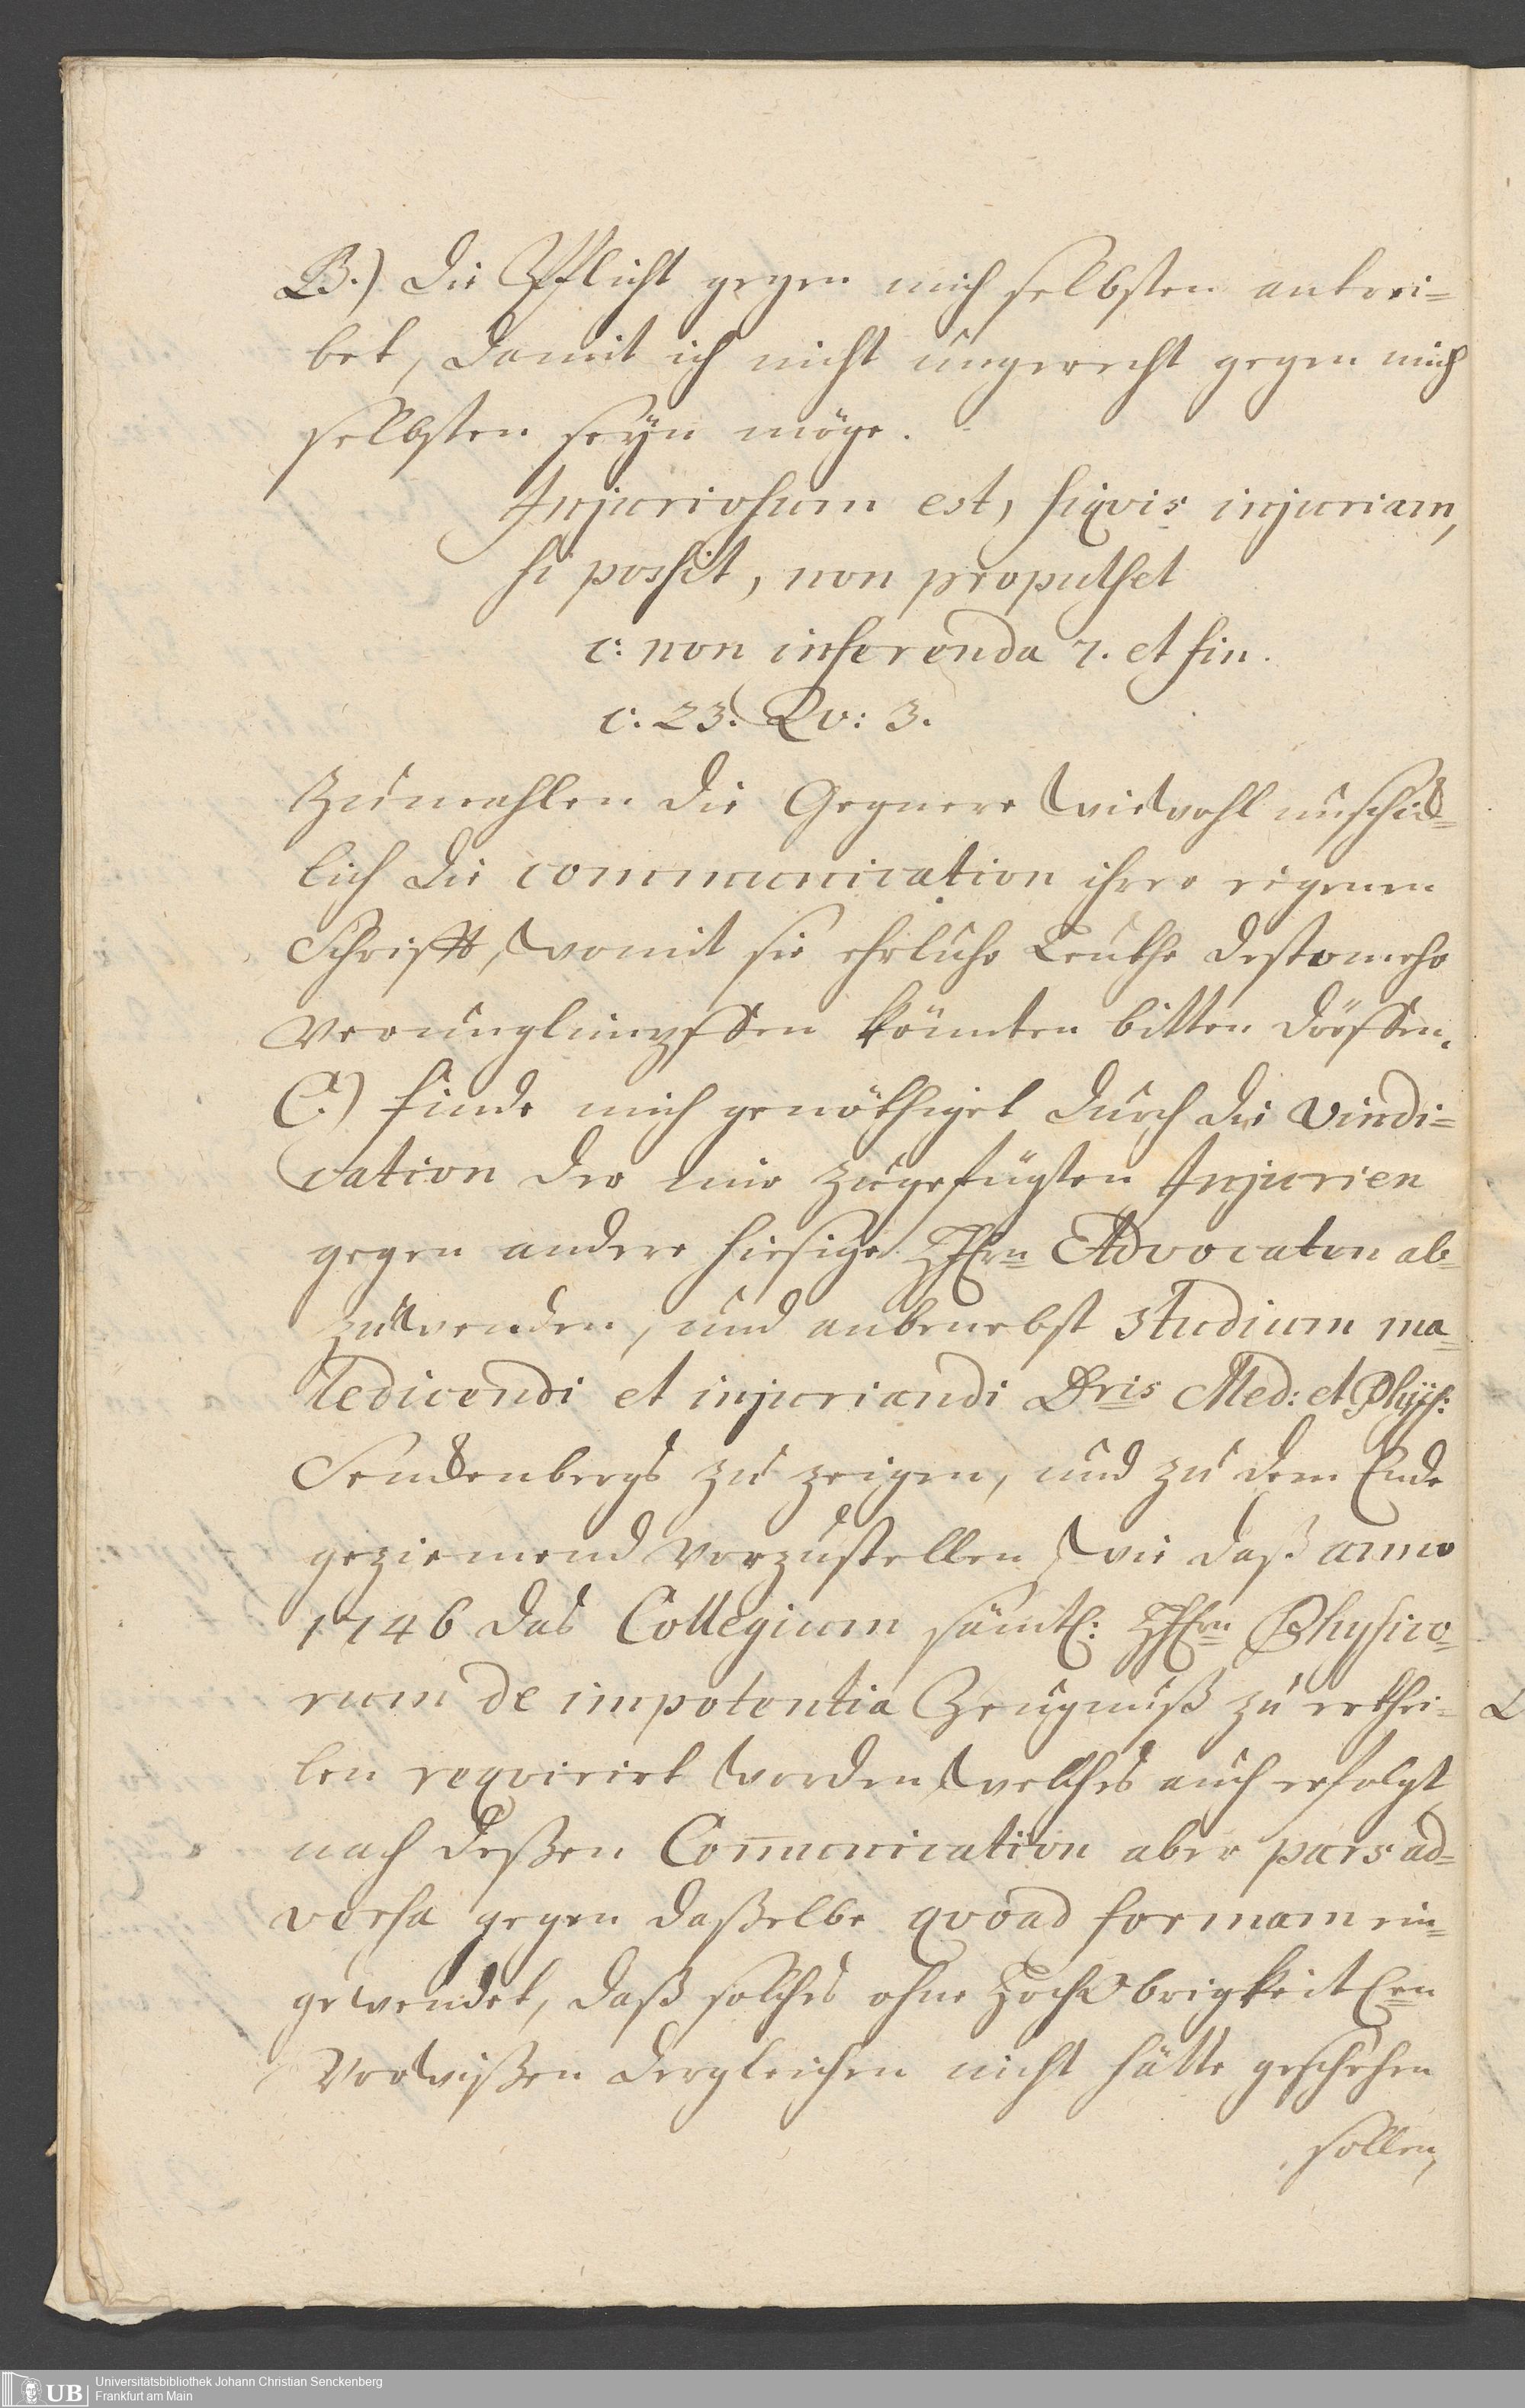 B.) die Pflicht gegen mich selbsten antrei=
bet, damit ich nicht ungerecht gegen mich
selbsten seyn möge.
Injuriosum est, siqvis injuriam,
si possit, non propulset
c: non inferenda 7. et fin.
c: 23. Qv: 3.
Zumahlen die Gegnere wiewohl unschick=
lich die communication ihrer eigenen
Schrifft, womit sie ehrliche Leuthe destomehr
verunglimpffen könnten bitten dörffen.
C.) finde mich genöthiget durch die vindi=
cation der mir zugefügten Injurien
gegen andere hiesige HhErn Advocaten ab=
zuwenden, und anbenebst studium ma=
ledicendi et injuriandi Dris Med: et Phys:
Senckenbergs zu zeigen, und zu dem Ende
geziemend vorzustellen, wie daß anno
1746 das Collegium sämtl: HhErn Physico=
rum de impotentia Zeugnuß zu erthei=
len reqvirirt worden, welches auch erfolgt,
nach deßen Com̄unication aber pars ad=
versa gegen daßelbe qvoad formam ein=
gewendet, daß solches ohne HochObrigkeitlen
Vorwißen dergleichen nicht hätte geschehen
sollen,
Universitätsbibliothek Johann Christian Senckenberg
Frankfurt am Main
UB